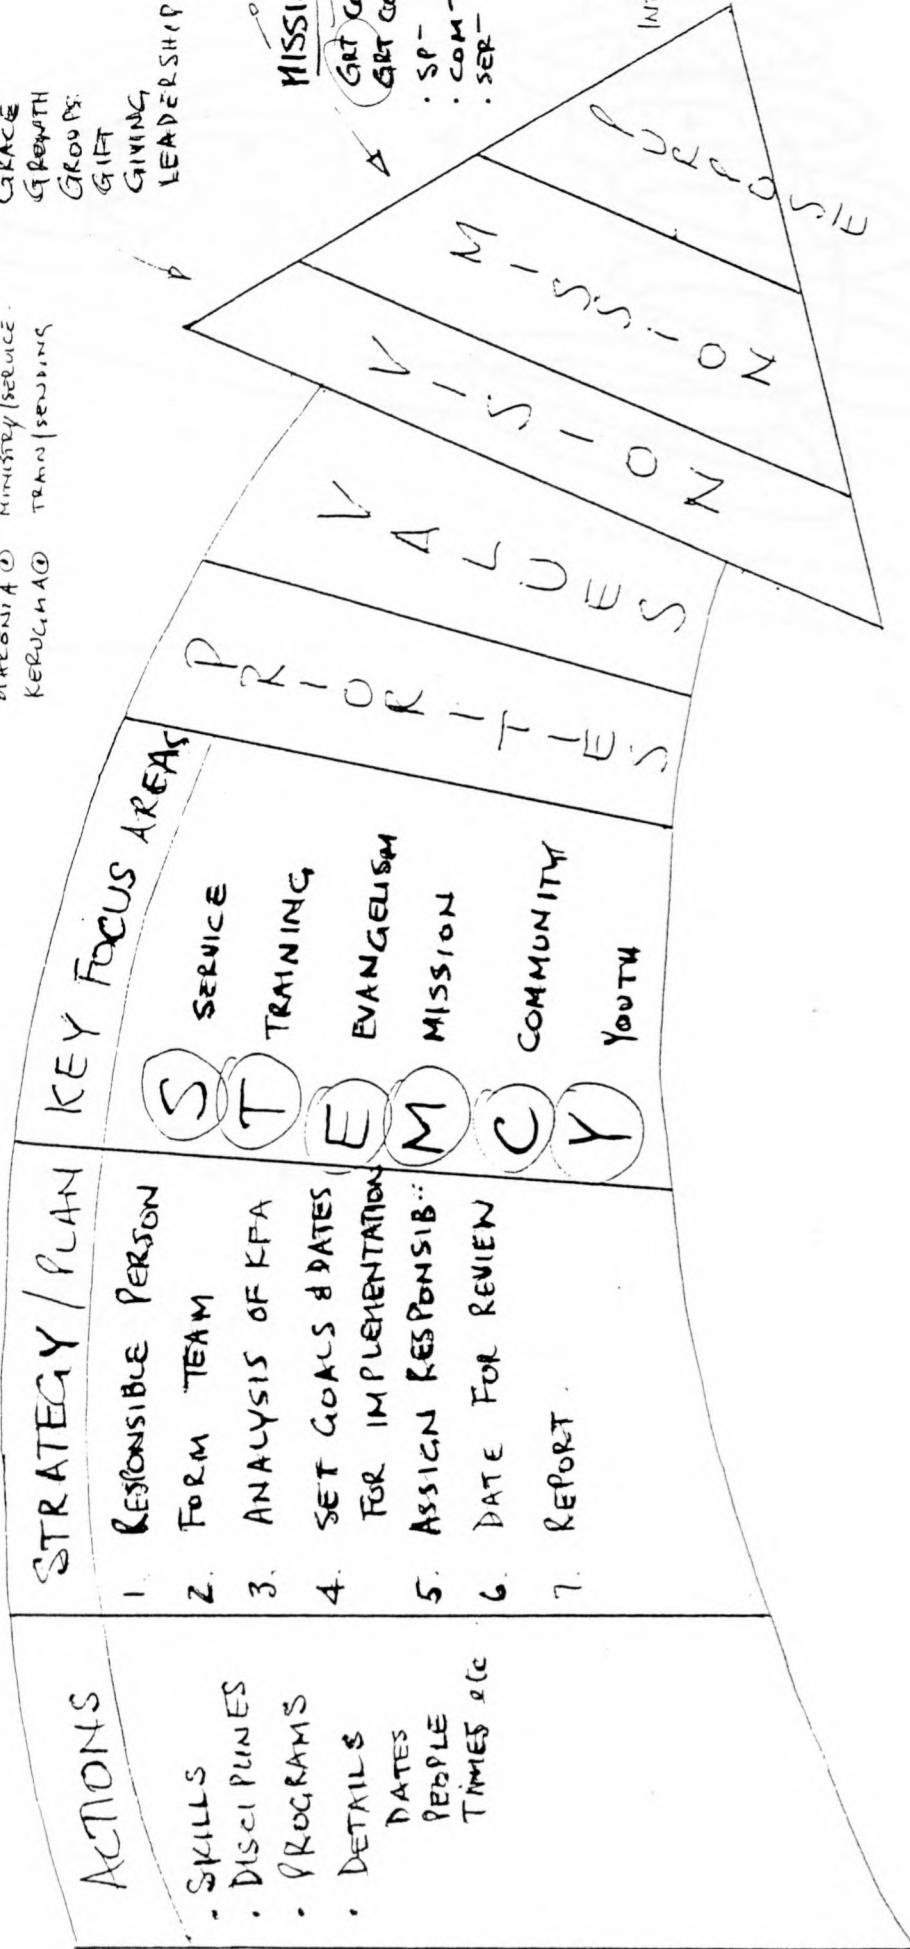 ACTIONS
· SKILLS
· DISCIPLINES
· PROGRAMS
· DETAILS
DATES
PEOPLE
TIMES etc
STRATEGY/PLAN
1. RESPONSIBLE PERSON
2. FORM TEAM
3. ANALYSIS OF KFA
4. SET GOALS & DATES
FOR IMPLEMENTATION
5. ASSIGN RESPONSIB
6. DATE FOR REVIEW
7. REPORT.
KEY FOCUS AREAS
S SERVICE
T TRAINING
E EVANGELISM
M MISSION
C COMMUNITY
Y YOUTH
PRIORITIES
VALUES
VISION
MISSION
PURPOSE
MINISTRY/SERVICE.
KERUGMA TRAIN/SENDING
GRACE
GROWTH
GROUPS
GIFT
GIVING
LEADERSHIP
MISSI
GRT Co
GRT Co
· SP-
· COM-
· SER-